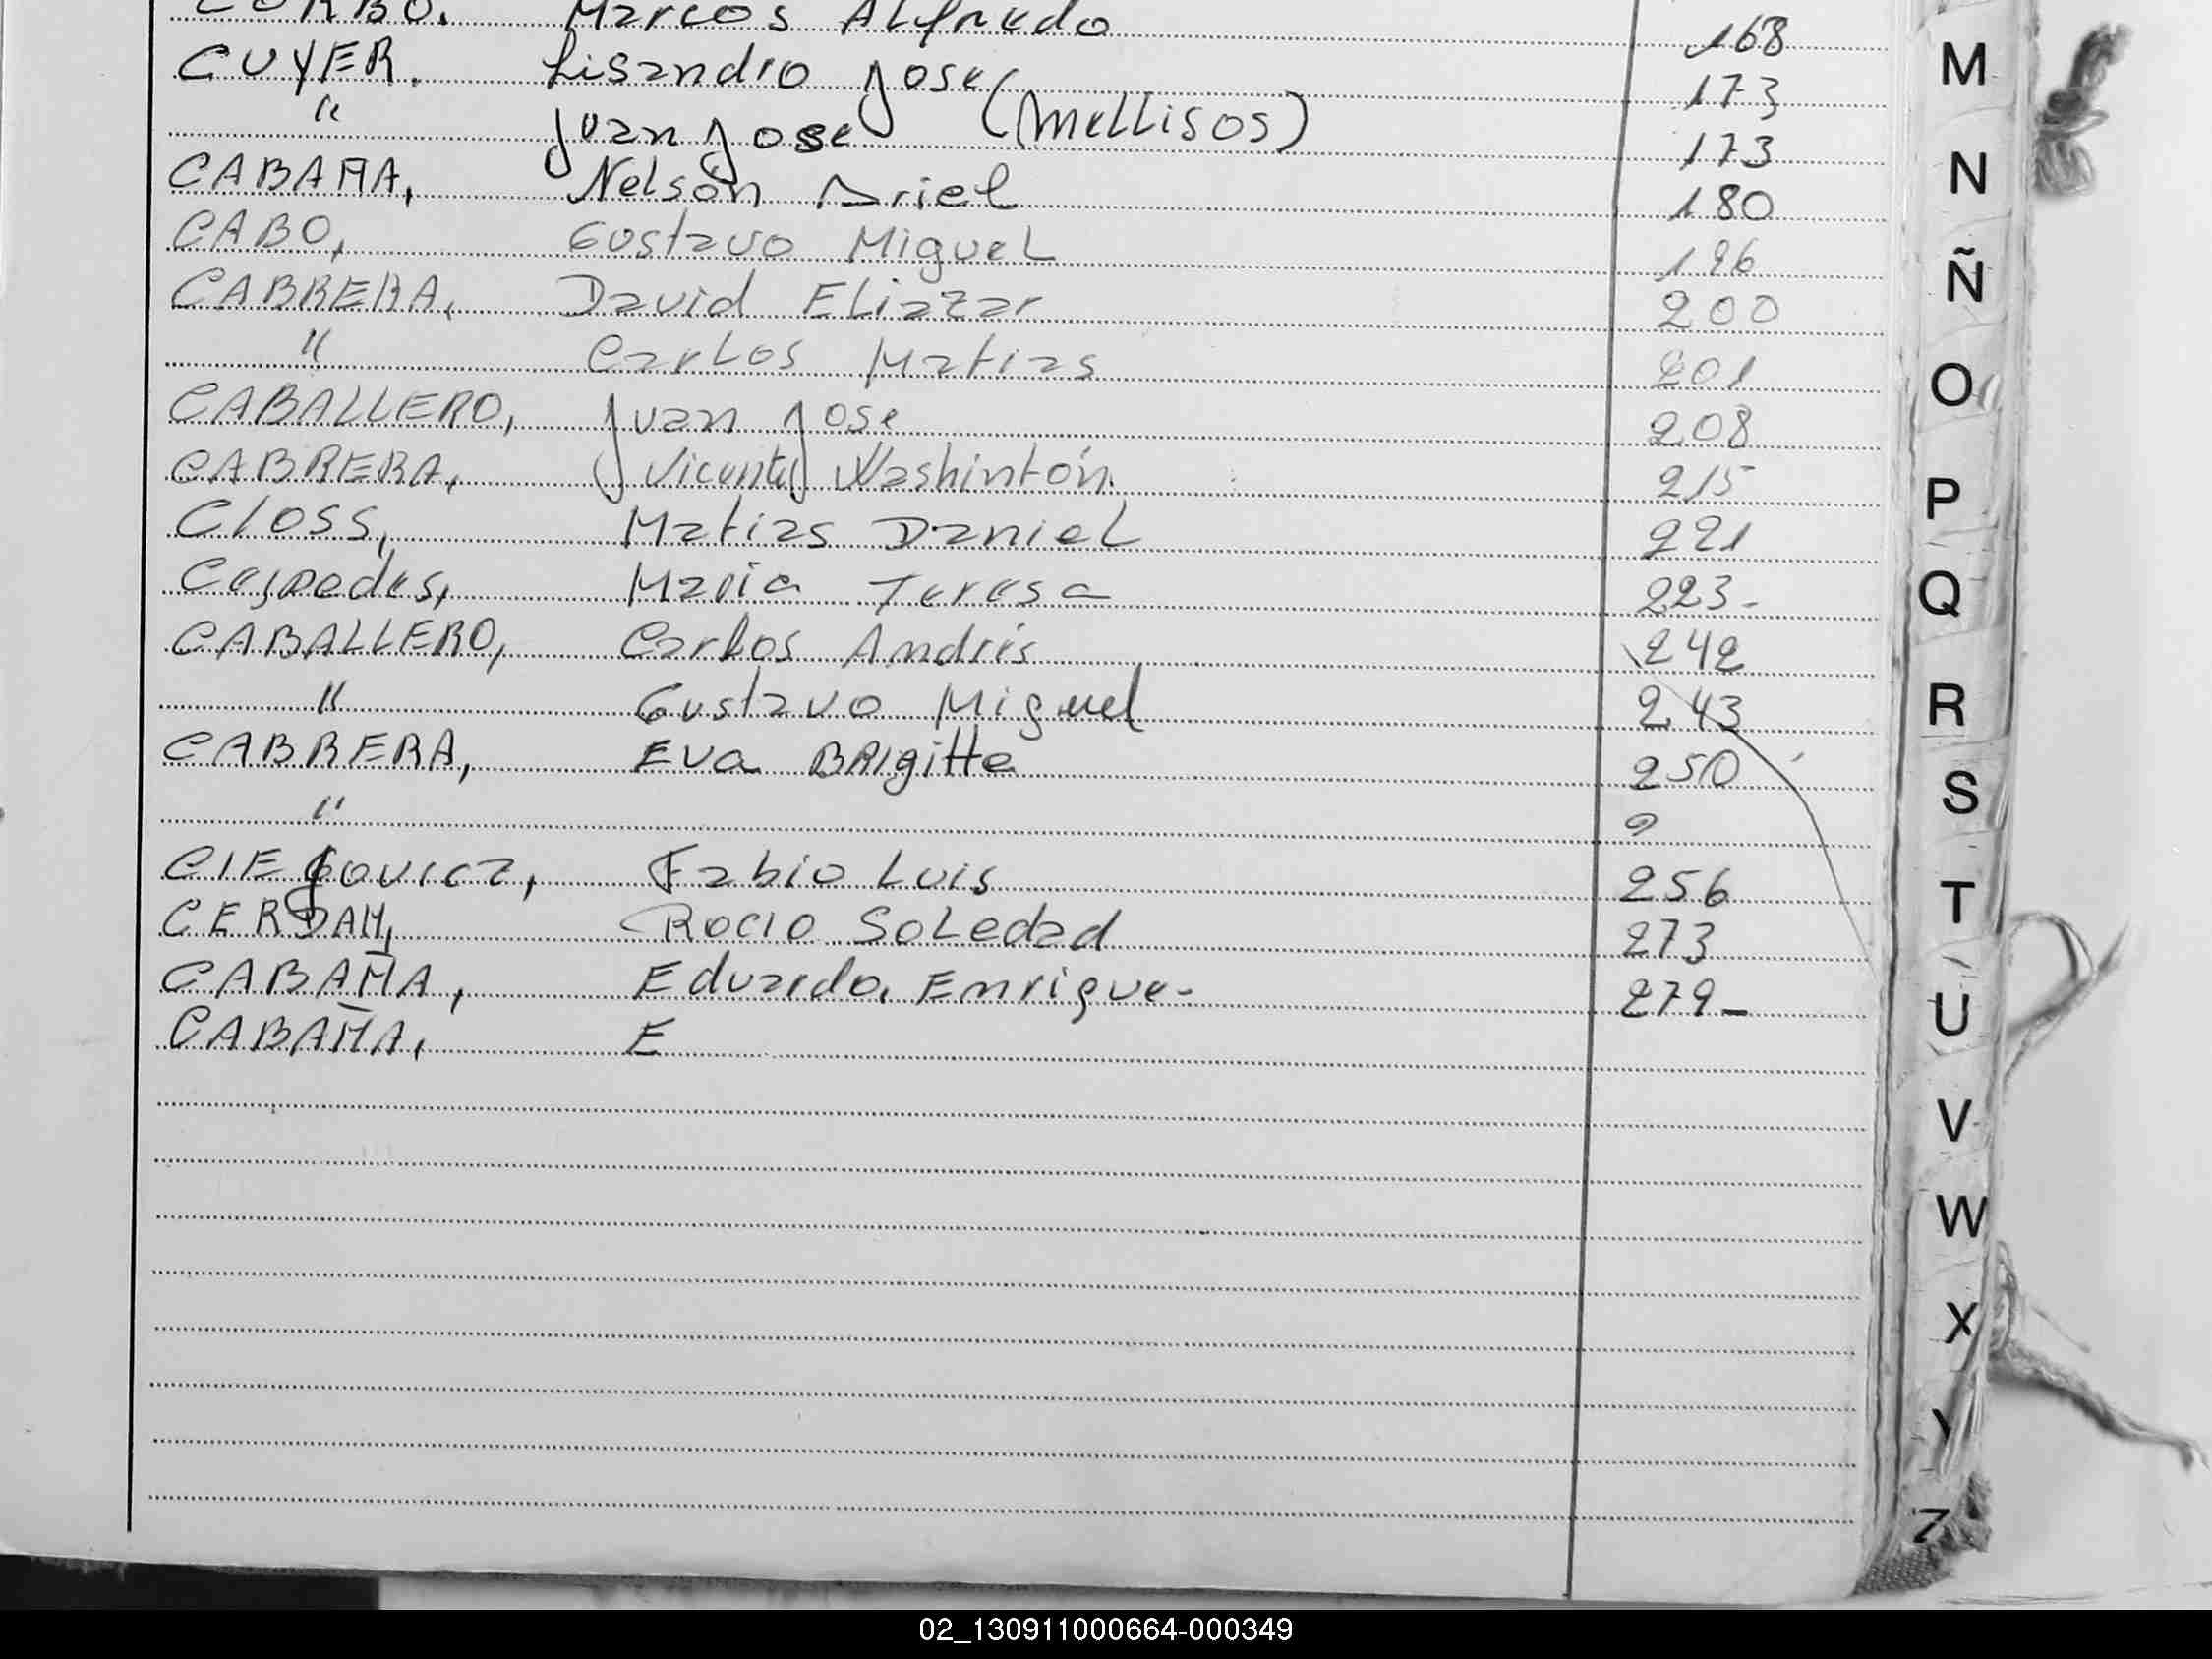 CORBO. Marcos Alfredo 168
CUYER. Lisandro Jose 173
" Juan Jose (Mellisos) 173
CABAÑA, Nelson Ariel 180
CABO, Gustavo Miguel 196
CABRERA, David Eliazar 200
" Carlos Matias 201
CABALLERO, Juan Jose 208
CABRERA, Vicente Washintón. 215
Closs, Matias Daniel 221
Cespedes, Maria Teresa 223-
CABALLERO, Carlos Andrés 242
" Gustavo Miguel 243
CABRERA, Eva BRIgitte 250
" 2
CIEgovicz, Fabio Luis 256
CERDAN, Rocio Soledad 273
CABAÑA, Eduardo. Enrique- 279-
CABAÑA, E
M
N
Ñ
O
P
Q
R
S
T
U
V
W
X
Y
Z
02_130911000664-000349